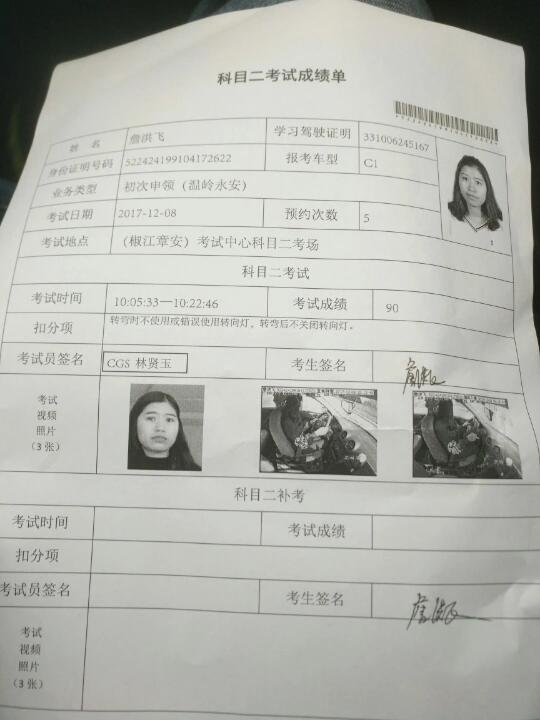 科目二考试成绩单
姓 名 詹洪飞 学习驾驶证明 331006245167
身份证明号码 522424199104172622 报考车型 C1
业务类型 初次申领（温岭永安）
考试日期 2017-12-08 预约次数 5
考试地点 （椒江章安）考试中心科目二考场
科目二考试
考试时间 10:05:33—10:22:46 考试成绩 90
扣分项 转弯时不使用或错误使用转向灯，转弯后不关闭转向灯。
考试员签名 CGS 林贤玉 考生签名
考试
视频
照片
（3 张）
科目二补考
考试时间 考试成绩
扣分项
考试员签名 考生签名
考试
视频
照片
（3 张）